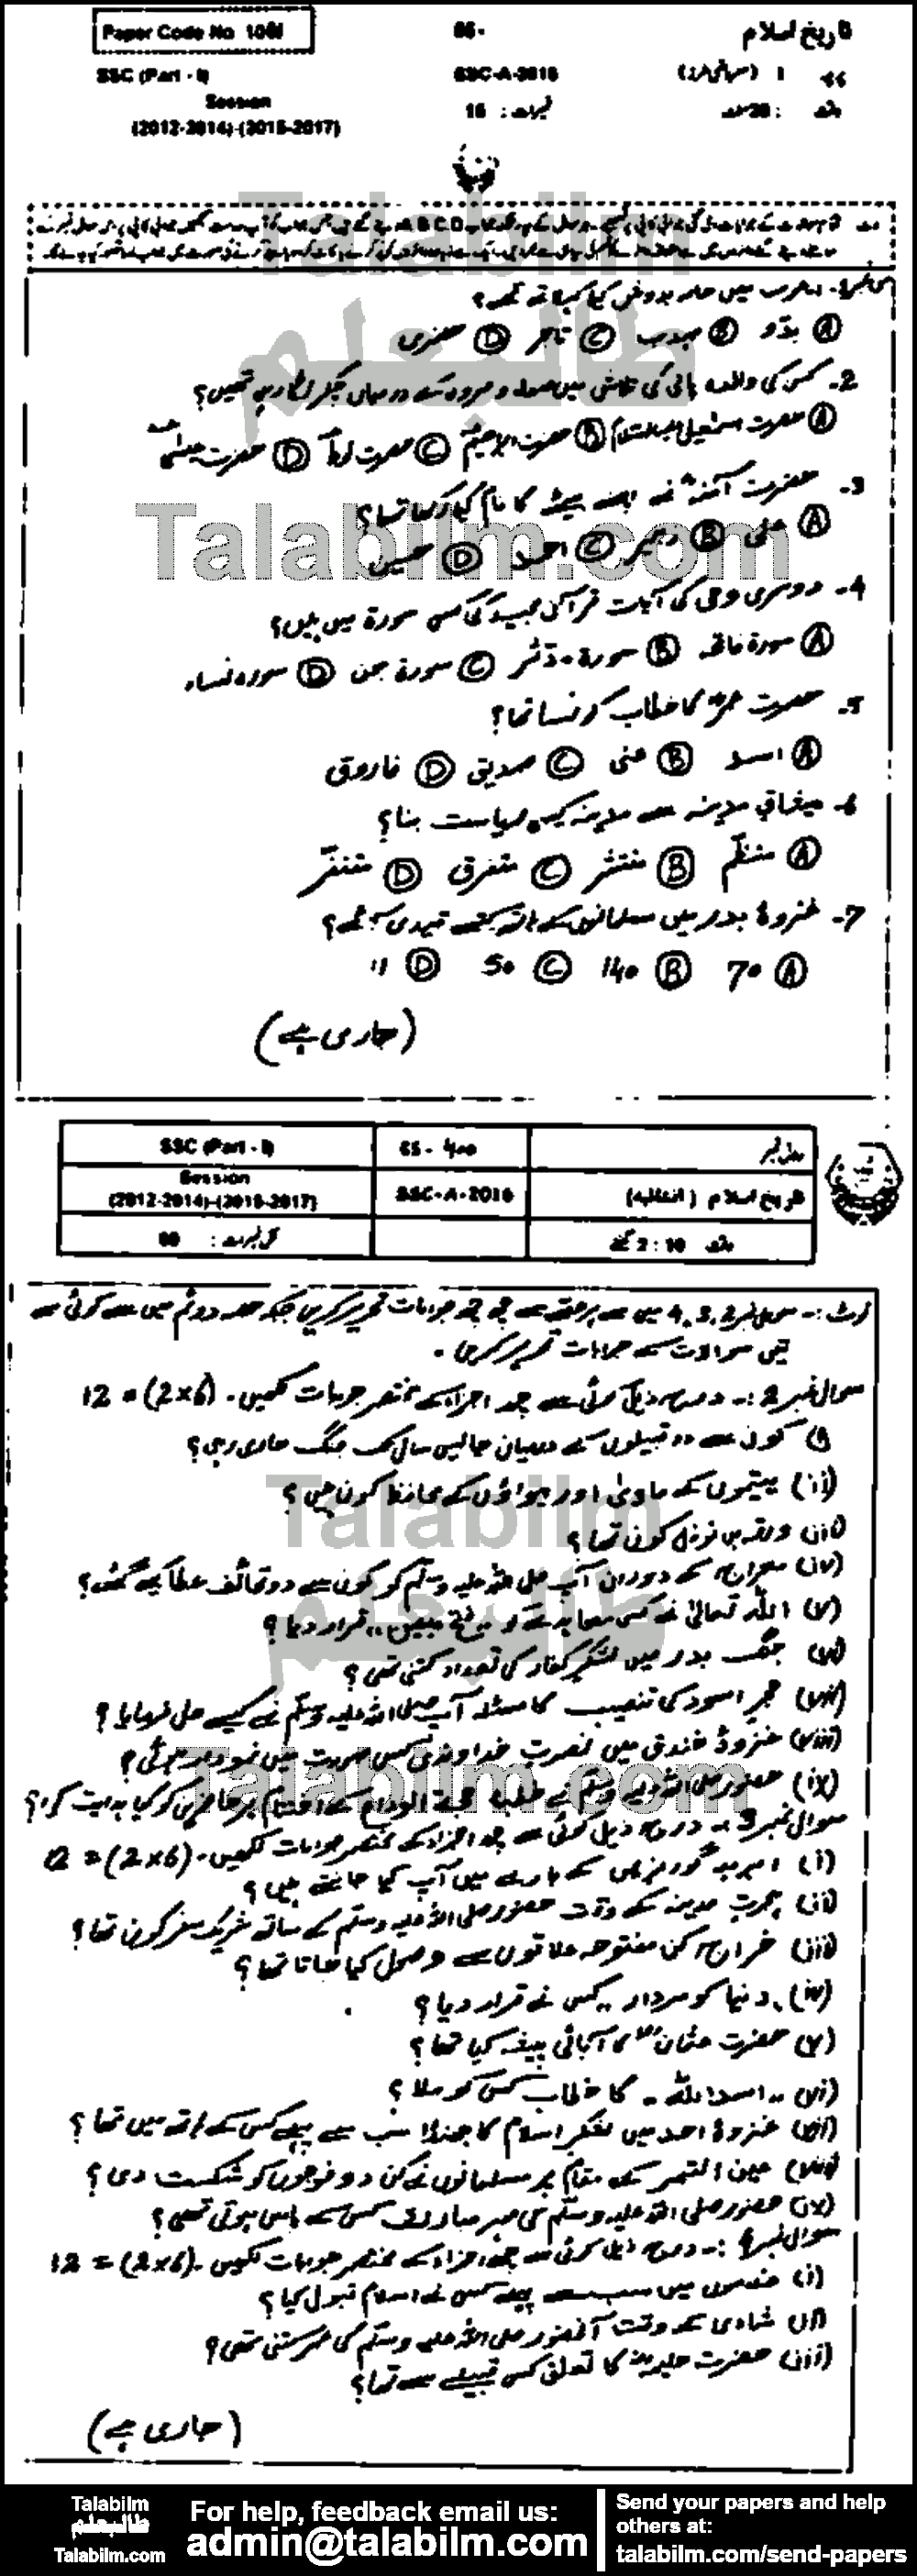 Paper Code No
تاریخ اسلام
SSC (Part - I)
SSC-A-2016
Session
نمبرات : 15
(2012-2014)-(2015-2017)
نوٹ
1- عرب میں خانہ بدوش کیا کہلاتے تھے؟
Ⓐ بدّو Ⓑ مہذب Ⓒ تاجر Ⓓ حضری
2- کس کی والدہ پانی کی تلاش میں صفا و مروہ کے درمیان چکر لگا رہی تھیں؟
Ⓐ حضرت اسمٰعیل علیہ السلام Ⓑ حضرت ابراہیمؑ Ⓒ حضرت لوطؑ Ⓓ حضرت عیسٰیؑ
3- حضرت آمنہؓ نے اپنے بیٹے کا نام کیا رکھا تھا؟
Ⓐ علی Ⓑ Ⓒ احمد Ⓓ حسین
4- دوسری وحی کی آیات قرآن مجید کی کس سورۃ میں ہیں؟
Ⓐ سورۃ فاتحہ Ⓑ سورۃ مدثر Ⓒ سورۃ جن Ⓓ سورہ نساء
5- حضرت عمرؓ کا خطاب کونسا تھا؟
Ⓐ اسد Ⓑ غنی Ⓒ صدیق Ⓓ فاروق
6- میثاقِ مدینہ سے مدینہ کیسی ریاست بنا؟
Ⓐ منظّم Ⓑ منتشر Ⓒ متفرق Ⓓ متنفّر
7- غزوۂ بدر میں مسلمانوں کے ہاتھ کتنے قیدی آئے تھے؟
Ⓐ 70 Ⓑ 140 Ⓒ 50 Ⓓ 11
(جاری ہے)
رول نمبر
SSC (Part - I)
تاریخ اسلام (انشائیہ)
SSC-A-2016
Session
(2012-2014)-(2015-2017)
وقت 2 : 10 گھنٹے
کل نمبرات :
نوٹ :- سوال نمبر 2، 3، 4 میں سے ہر حصے سے چھ چھ جوابات تحریر کریں جبکہ حصہ دوئم میں سے کوئی سے
تین سوالات کے جوابات تحریر کریں۔
سوال نمبر 2 :- درج ذیل کوئی سے چھ اجزاء کے مختصر جوابات لکھیں۔ (2×6) = 12
(i) کون سے دو قبیلوں کے درمیان چالیس سال تک جنگ جاری رہی؟
(ii) یتیموں کے ماویٰ اور بیواؤں کے محافظ کون ہیں؟
(iii) ورقہ بن نوفل کون تھا؟
(iv) معراج کے دوران آپ صلی اللہ علیہ وسلم کو کون سے دو تحائف عطا کیے گئے؟
(v) اللہ تعالیٰ نے کس معاہدے کو ,,فتح مبین,, قرار دیا؟
(vi) جنگ بدر میں لشکرِ کفار کی تعداد کتنی تھی؟
(vii) حجرِ اسود کی تنصیب کا مسئلہ آپ صلی اللہ علیہ وسلم نے کیسے حل فرمایا؟
(viii) غزوۂ خندق میں نصرتِ خداوندی کس صورت میں نمودار ہوئی؟
(ix) حضور صلی اللہ علیہ وسلم نے خطبہ حجۃ الوداع کے اختتام پر حاضرین کو کیا ہدایت کی؟
سوال نمبر 3 :- درج ذیل کوئی سے چھ اجزاء کے مختصر جوابات لکھیں۔ (2×6) = 12
(i) امیرِ گورنروں کے بارے میں آپ کیا جانتے ہیں؟
(ii) ہجرتِ مدینہ کے وقت حضور صلی اللہ علیہ وسلم کے ساتھ شریک سفر کون تھا؟
(iii) خراج، کن مفتوحہ علاقوں سے وصول کیا جاتا تھا؟
(iv) دنیا کو مردار، کس نے قرار دیا؟
(v) حضرت عثمانؓ کا آبائی پیشہ کیا تھا؟
(vi) ,,اسد اللہ,, کا خطاب کس کو ملا؟
(vii) غزوۂ احد میں لشکرِ اسلام کا جھنڈا سب سے پہلے کس کے ہاتھ میں تھا؟
(viii) عین التمر کے مقام پر مسلمانوں نے کن دو فوجوں کو شکست دی؟
(ix) حضور صلی اللہ علیہ وسلم کی مہر مبارک کس کے پاس ہوتی تھی؟
سوال نمبر 4 :- درج ذیل کوئی سے چھ اجزاء کے مختصر جوابات لکھیں۔ (2×6) = 12
(i) میں سب سے پہلے کس نے اسلام قبول کیا؟
(ii) شادی کے وقت آنحضور صلی اللہ علیہ وسلم کی عمر کتنی تھی؟
(iii) حضرت حلیمہؓ کا تعلق کس قبیلے سے تھا؟
(جاری ہے)
Talabilm
طالبعلم
Talabilm.com
Talabilm
طالبعلم
Talabilm.com
Talabilm
طالبعلم
Talabilm.com
For help, feedback email us:
admin@talabilm.com
Send your papers and help
others at:
talabilm.com/send-papers